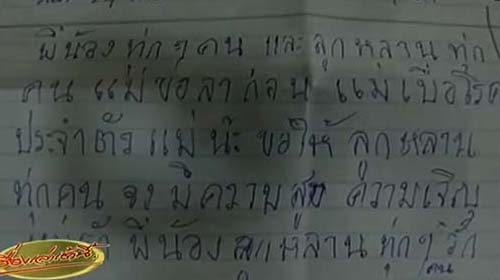 พี่น้องทุกๆคน และลูกหลานทุก
คน แม่ขอลาก่อน แม่เบื่อโรค
ประจำตัวแม่น๊ะ ขอให้ลูกหลาน
ทุกคน จงมีความสุข ความเจริญ
พี่น้องลูกหลานทุกๆ รัก
คน
เรื่องเล่าเช้านี้